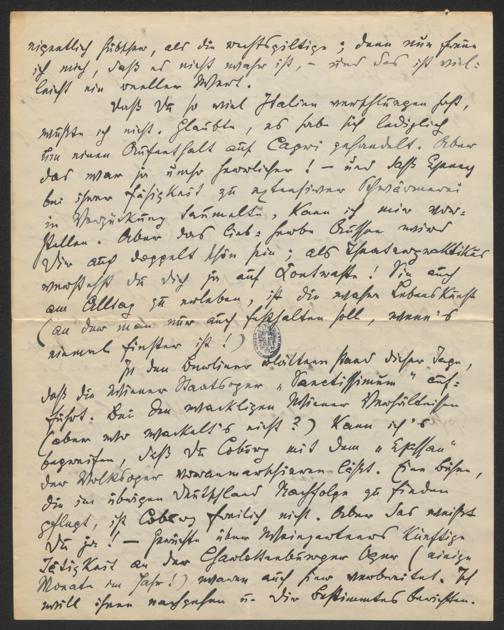 eigentlich hübscher, als die rechtsgiltige; denn nun freue
ich mich, daß es nicht wahr ist, – und das ist viel-
leicht ein reeller Wert.
Daß Du so viel Italien verschlungen hast,
wußte ich nicht. Glaubte, es habe sich lediglich
um einen Aufenthalt auf Capri gehandelt. Aber
das war ja umso herrlicher! – und daß
bei ihrer Fähigkeit zu extensiver Schwärmerei
in Verzückung taumelte, kann ich mir vor-
stellen. Aber das lieb-herbe Aussee wird
Dir auch doppelt schön sein; als Theaterpraktikus
verstehst Du Dich ja auf Kontraste! Sie auch
am Alltag zu erleben, ist die wahre Lebenskunst
(an der man nur auch festhalten soll, wenn's
einmal finster ist!)
In den Berliner Blättern stand dieser Tage,
daß die Wiener Staatsoper „Sanctissimum" auf-
führt. Bei den wackligen Wiener Verhältnissen
(aber wo wackelt's nicht?) kann ich's
begreifen, daß Du Coburg mit dem
der Volksoper voranmarschieren läßt. Eine Bühne,
die im übrigen Deutschland Nachfolge zu finden
pflegt, ist Coburg freilich nicht. Aber das weißt
Du ja! – Gerüchte über Weingartners künftige
Tätigkeit an der Charlottenburger Oper (einige
Monate im Jahr!) waren auch hier verbreitet. Ich
will ihnen nachgehen u. Dir Bestimmtes berichten.